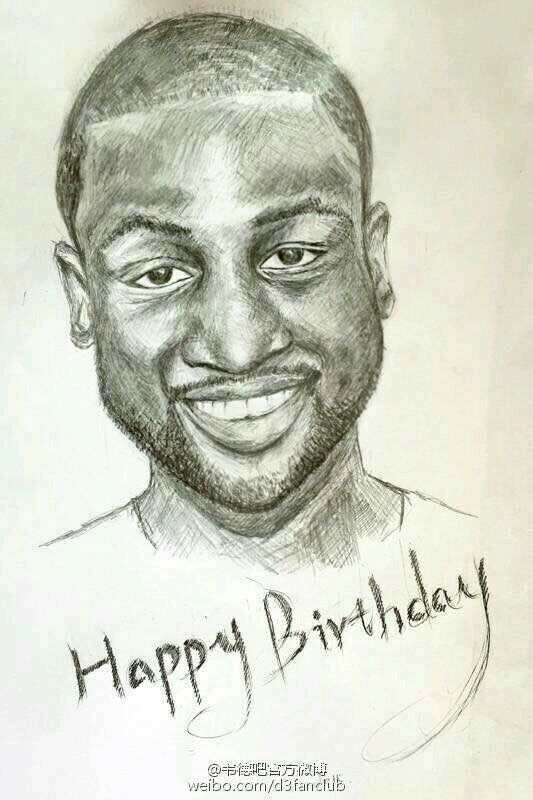 Happy Birthday
@韦德吧官方微博
weibo.com/d3fanclub